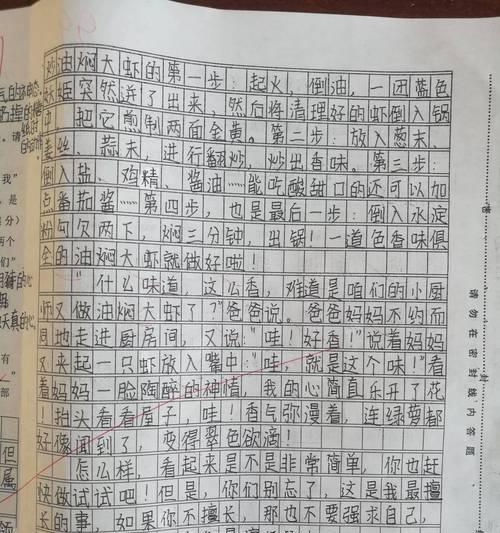 油焖大虾的第一步:起火,倒油,一团蓝色
火姬突然迸了出来,然后将清理好的虾倒入锅
中,把它煎制两面金黄。第二步:放入葱末、
姜丝、蒜末,进行翻炒,炒出香味。第三步:
倒入盐、鸡精、酱油……能吃酸甜口的还可以加
点番茄酱……第四步,也是最后一步:倒入水淀
粉勾欠两下,焖三分钟,出锅!一道色香味俱
全的油焖大虾就做好啦!
"什么味道,这么香,难道是咱们的小厨
师又做油焖大虾了?"爸爸说。爸爸妈妈不约而
同地走进厨房间,又说:"哇!好香!"说着妈妈
又夹起一只虾放入嘴中:"哇,就是这个味!"看
着妈妈一脸陶醉的神情,我的心简直乐开了花
!抬头看看屋子,哇!香气弥漫着,连绿萝都
好像闻到了,变得翠色欲滴!
怎么样,看起来是不是非常简单,你也赶
快做试试吧!但是,你们别忘了,这是我最擅
长的事,如果你不擅长,那也不要强求自己,
请勿在密封线内答题
密
封